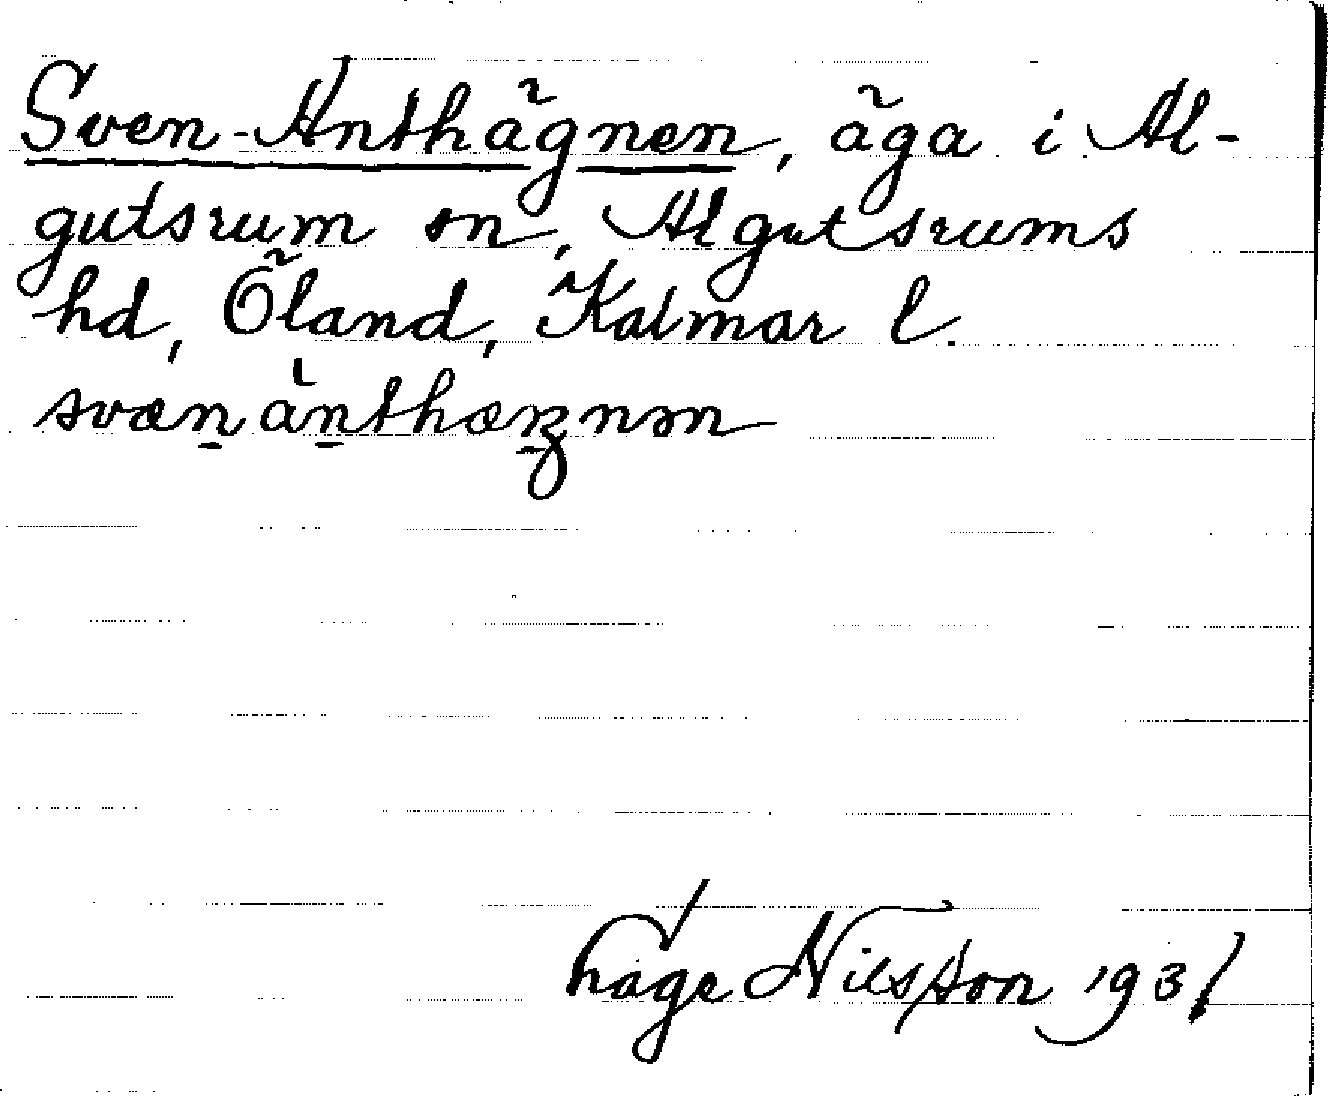 Sven-Anthägnen, äga i Al-
gutsrum sn, Algutsrums
hd, Öland, Kalmar l.
svænànthæŋnən
Håge Nilsson 1931